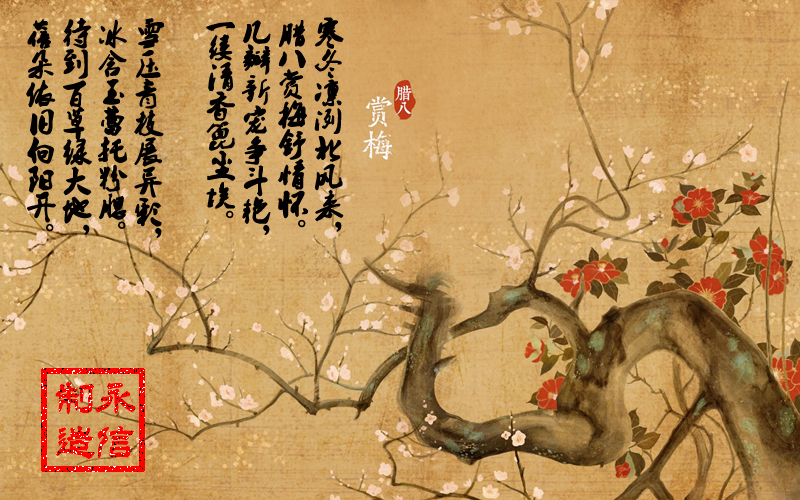 腊八
赏梅
寒冬凛冽北风来，
腊八赏梅舒情怀。
几瓣新宠争斗艳，
一缕清香尘埃。
雪压青枝展异彩，
冰含玉蕾托粉腮。
待到百草绿大地，
蓓朵依旧向阳开。
永信
制造